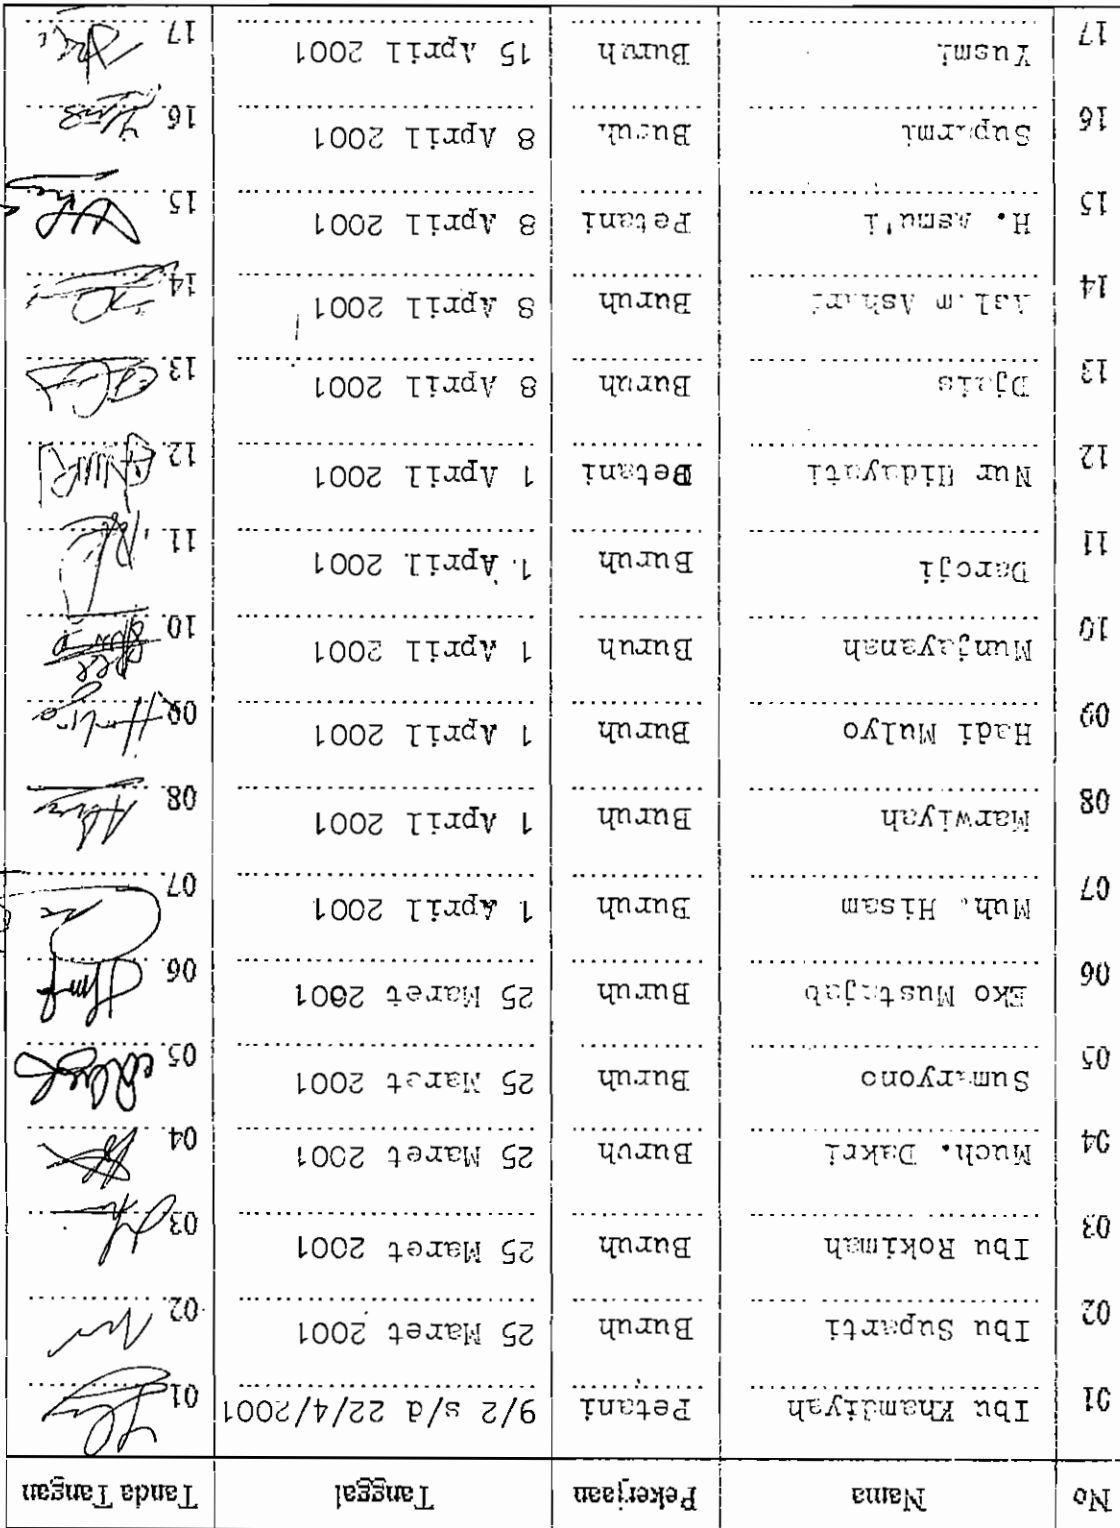 No Nama Pekerjaan Tanggal Tanda Tangan
01 Ibu Khamdiyah Petani 9/2 s/d 22/4/2001 01
02 Ibu Suparti Buruh 25 Maret 2001 02
03 Ibu Rokimah Buruh 25 Maret 2001 03
04 Much. Dakri Buruh 25 Maret 2001 04
05 Sumaryono Buruh 25 Maret 2001 05
06 Eko Mustajab Buruh 25 Maret 2001 06
07 Muh. Hisam Buruh 1 April 2001 07
08 Marwiyah Buruh 1 April 2001 08
09 Hadi Mulyo Buruh 1 April 2001 09
10 Munjayanah Buruh 1 April 2001 10
11 Daroji Buruh 1 April 2001 11
12 Nur Hidayati Petani 1 April 2001 12
13 Djais Buruh 8 April 2001 13
14 Ashari Buruh 8 April 2001 14
15 H. Asmu'i Petani 8 April 2001 15
16 Suparmi Buruh 8 April 2001 16
17 Yusmi Buruh 15 April 2001 17